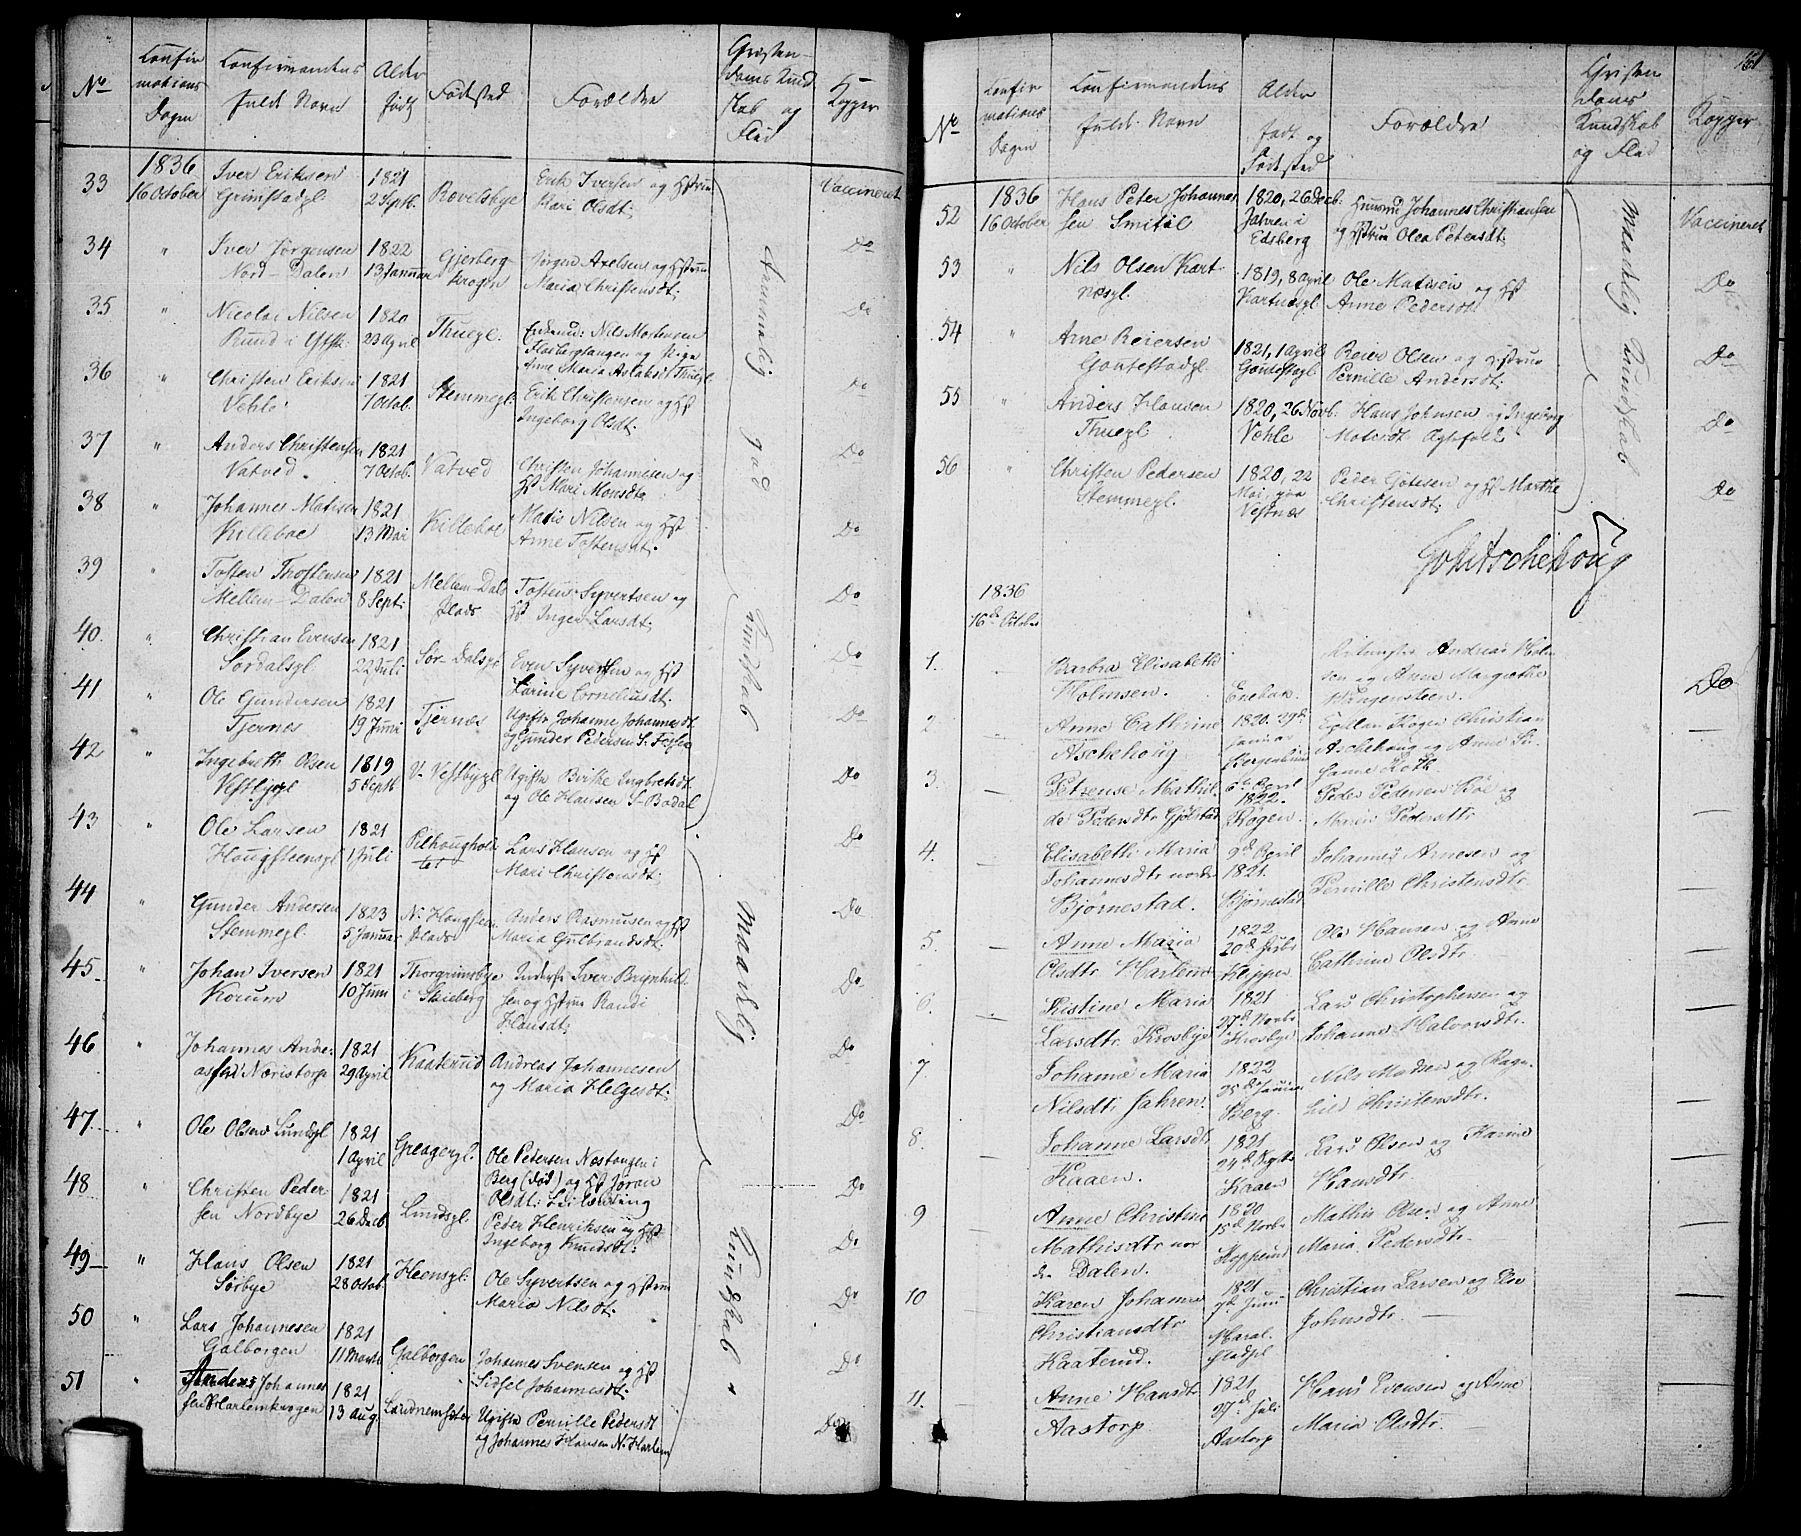 No
Confir
mations
Dagen
Confirmandens
fulde Navn
Alder
født
Fødested
Forældre
Christen-
doms Kund
skab og
Flid
Kopper
33
1836
16 October
Iver Eriksen
Grimstadgl.
1821
2 Septb.
Ravelsbye
Erik Iversen og Hstru
Kari Olsdt:
Vaccineret
34
"
Iver Jørgensen
Nord-Dalen
1822
13 Januar
Gjerberg-
krogen
Jørgen Axelsen og Hstru
Maria Christensdt:
Do
35
"
Nicolai Nilsen
Rund i
1820
23 April
Thuegl.
Nils Mortensen
og Pige
Anne Maria Aslaksdt Thuegl.
Do
36
"
Christen Eriksen
Vehle
1821
7 Octob.
Stemmegl.
Erik Christensen og Hst
Ingeborg Olsdt:
Do
37
"
Anders Christensen
Vatved
1821
7 Octob.
Vatved
Christen Johannesen og
Hst Mari Monsdtr
Do
38
"
Johannes Matisen
Killeboe
1821
13 Mai
Killeboe
Matis Nilsen og Hst
Anne Tostensdt.
Do
39
"
Tosten Thostensen
Mellem-Dalen
1821
8 Sept:
Mellem-Dals
Plads
Tosten Syvertsen og
Hst Inger Larsdt;
Do
40.
"
Christian Evensen
Sørdalsgl
1821
22 Juli
Sør-Dalsgl
Even Syvertsen og Hst
Karine Corneliusdt:
Do
41
"
Ole Gundersen
Tjernes
1821
19 Juni
Tjernæs
Ugifte Johanne Johannesdt.
og Gunder Pedersen S.
Do
42
"
Ingebreth Olsen
Vestbygl
1819
5 Septb
V. Vestbygl
Ugifte Birthe Ingbretsdt
og Ole Hansen S-Bodal
Do
43
"
Ole Larsen
Hougsteensgl
1821
1 Juli
Pilhoughold
tet
Lars Hansen og Hst
Mari Christensdt;
Do
44
"
Gunder Andersen
Stemmegl.
1823
5 Januar
N. Hougsteen
Plads
Anders Rasmusen og Hst
Maria Gulbrandsdt:
Do
45
"
Johan Iversen
Korum
1821
10 Juni
Thorgrimsbye
i Skieberg
Inderst Iver Brynhild
sen og Hstru Randi
Hansdt;
Do
46
"
Johannes Andre-
asen Næristorp
1821
29 April
Kaaterud
Andreas Johannesen
og Maria Helgesdt;
Do
47
"
Ole Olsen Lundsgl
1821
1 April
Greagergl.
Ole Petersen Nestangen i
Berg (død) og Hst Jøran
Olsdt:
Do
48
"
Christen Peder-
sen Nordbye
1821
26 Decb.
Lundsgl.
Peder Henriksen og Hst
Ingeborg Knudsdt:
Do
49
"
Hans Olsen
Sørbye
1821
28 Octob.
Heensgl.
Ole Syvertsen og Hstru
Maria Nilsdt;
Do
50
"
Lars Johannesen
Galborgen
1821
11 Marts
Galborgen
Johannes Svensen og Hst
Sidsel Johannesdt.
Do
51
"
Anders Johannes
sen Harlemkrogen
1821
13 Aug.
Ugifte Pernille Pedersdt
og Johannes Hansen N. Harlem
Do
Temmelig god Kundskab
Maadelig Kundskab
151
No
Confir
mations
Dagen
Confirmandens
fulde Navn
Alder
født og
Fødested
Forældre
Christen
doms
Kundskab
og Flid
Kopper
52
1836
16 October
Hans Peter Johannes
sen Smitøl
1820, 26 Decb:
Jahren i
Edsberg
Huusmd Johannes Christiansen
og Hstru Olea Petersdt:
Vaccineret
53
"
Nils Olsen Kart-
næsgl.
1819, 8 April
Kartnæsgl
Ole Matisen og Hst
Anne Pedersdt
Do
54
"
Arne Reiersen
Goutestadgl.
1821, 1 April
Goutestagl.
Reier Olsen og Hstrue
Pernille Andersdt:
Do
55
"
Anders Hansen
Thuegl.
1820, 26 Novb.
Vehle
Hans Johnsen og Ingeborg
Matisdt
Do
56
"
Christen Pedersen
Stemmegl.
1820, 22
Mai, paa
Vestnæs
Peder Gotesen og Hst Marthe
Christensdt;
Do
Maadelig Kundskab
1836
16de Octobr
1.
Barbra Elisabeth
Holmsen.
Enebak.
Andreas Hol
sen og Anne Margrethe
Wangensteen.
Do
2
Anne Cathrine
Aschehoug
1820. 29de
Januar
Christian
Aschehoug og Anne Su-
sanne Roth.
3
Petrense Mathil-
de Pedersdtr Gjølstad
6te April
1822.
Rogen.
Peder Pedersen Bøe og
Maria Pedersdtr.
4.
Elisabeth Maria
Johannesdtr nordre
Bjørnestad.
9de April
1821.
Bjørnestad
Johannes Arnesen og
Pernille Christensdtr.
5.
Anne Maria
Olsdtr Harlem
1822
20de Febr
Klepper
Ole Hansen og Anne
Cathrine Olsdtr.
6.
Kistine Maria
Larsdtr Krosbye
1821
27de Novbr
Krosbye
Lars Christophersen og
Johanne Halvorsdtr.
7
Johanne Maria
Nilsdtr Jahren.
1822
25de Januar
Berg.
Nils Madsen og Ragn-
hild Christensdtr.
8.
Johanne Larsdtr
Kaaen.
1821
24de Septbr
Kaaen
Lars Olsen og Karine
Hansdtr.
9
Anne Christine
Mathisdtr nor
dre Dalen.
1820
15de Novbr
Mathis Olsen og Anne
Maria Pedersdtr.
10
Karen Johanne
Christiansdtr
Kaaterud.
1821
7de Juni
Christian Larsen og Else
Johnsdtr.
11.
Anne Hansdtr
Aastorp.
1821
27de Juli
Aastorp
Hans Evensen og Anne
Maria Olsdtr.